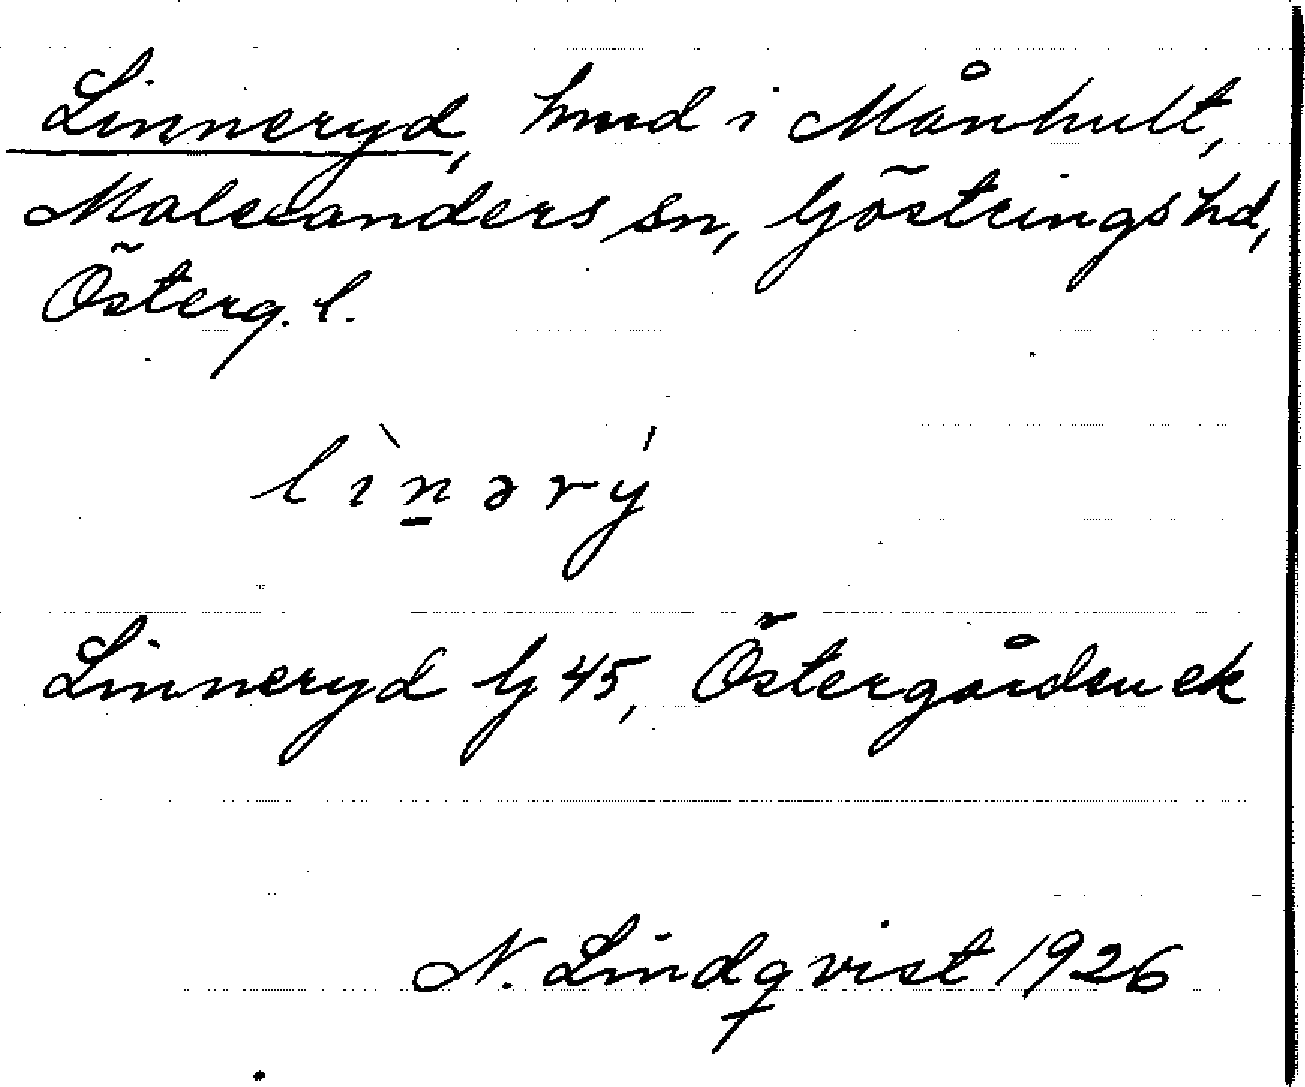 Linneryd, hmd i Månhult,
Malexanders sn, Göstrings hd,
Österg. l.
lìnərý
Linneryd G 45, Östergårdsn ek
N. Lindqvist 1926